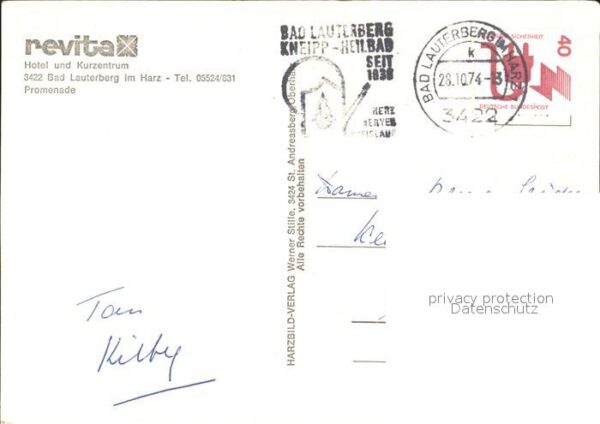 revita
Hotel und Kurzentrum
3422 Bad Lauterberg im Harz - Tel. 05524/831
Promenade
BAD LAUTERBERG
KNEIPP-HEILBAD
SEIT
1839
HERZ
NERVEN
KREISLAUF
BAD LAUTERBERG IM HARZ
k
28.10.74-3
3422
SICHERHEIT
40
DEUTSCHE BUNDESPOST
HARZBILD-VERLAG Werner Stille, 3424 St. Andreasberg Oberhar
Alle Rechte vorbehalten
Tom
Kilby
privacy protection
Datenschutz